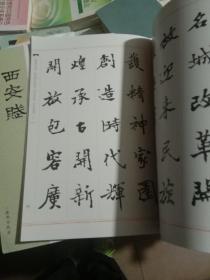 名城改革開
放迎来民族
護精神家園
創造時代輝
煌承古開新
開放包容廣
西安賦